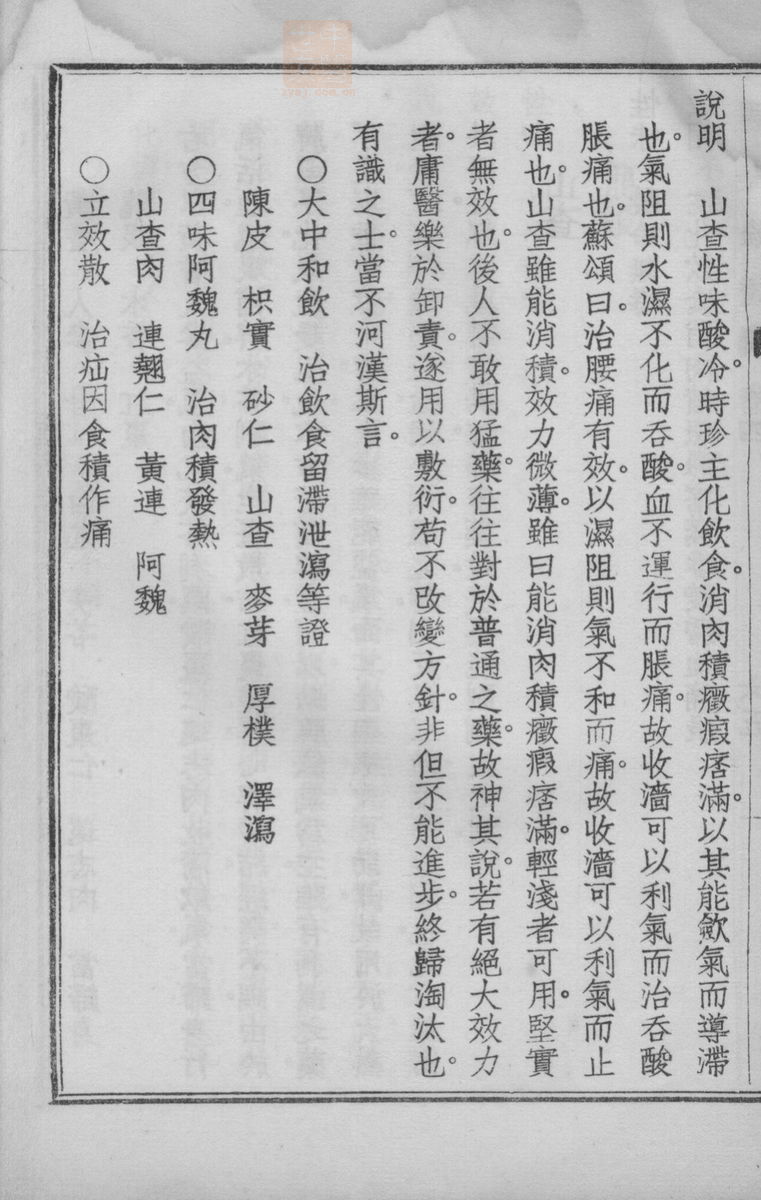 說明　山查性味酸冷。時珍主化飲食。消肉積癥瘕痞滿。以其能歛氣而導滯
也。氣阻則水濕不化而吞酸。血不運行而脹痛。故收濇可以利氣而治吞酸
脹痛也。蘇頌曰。治腰痛有效。以濕阻則氣不和而痛。故收濇可以利氣而止
痛也。山查雖能消積。效力微薄。雖曰能消肉積癥瘕痞滿。輕淺者可用。堅實
者無效也。後人不敢用猛藥。往往對於普通之藥。故神其說。若有絕大效力
者。庸醫樂於卸責。遂用以敷衍。苟不改變方針。非但不能進步。終歸淘汰也。
有識之士。當不河漢斯言。
〇大中和飲　治飲食留滯泄瀉等證
陳皮　枳實　砂仁　山查　麥芽　厚樸　澤瀉
〇四味阿魏丸　治肉積發熱
山查肉　連翹仁　黃連　阿魏
〇立效散　治疝因食積作痛